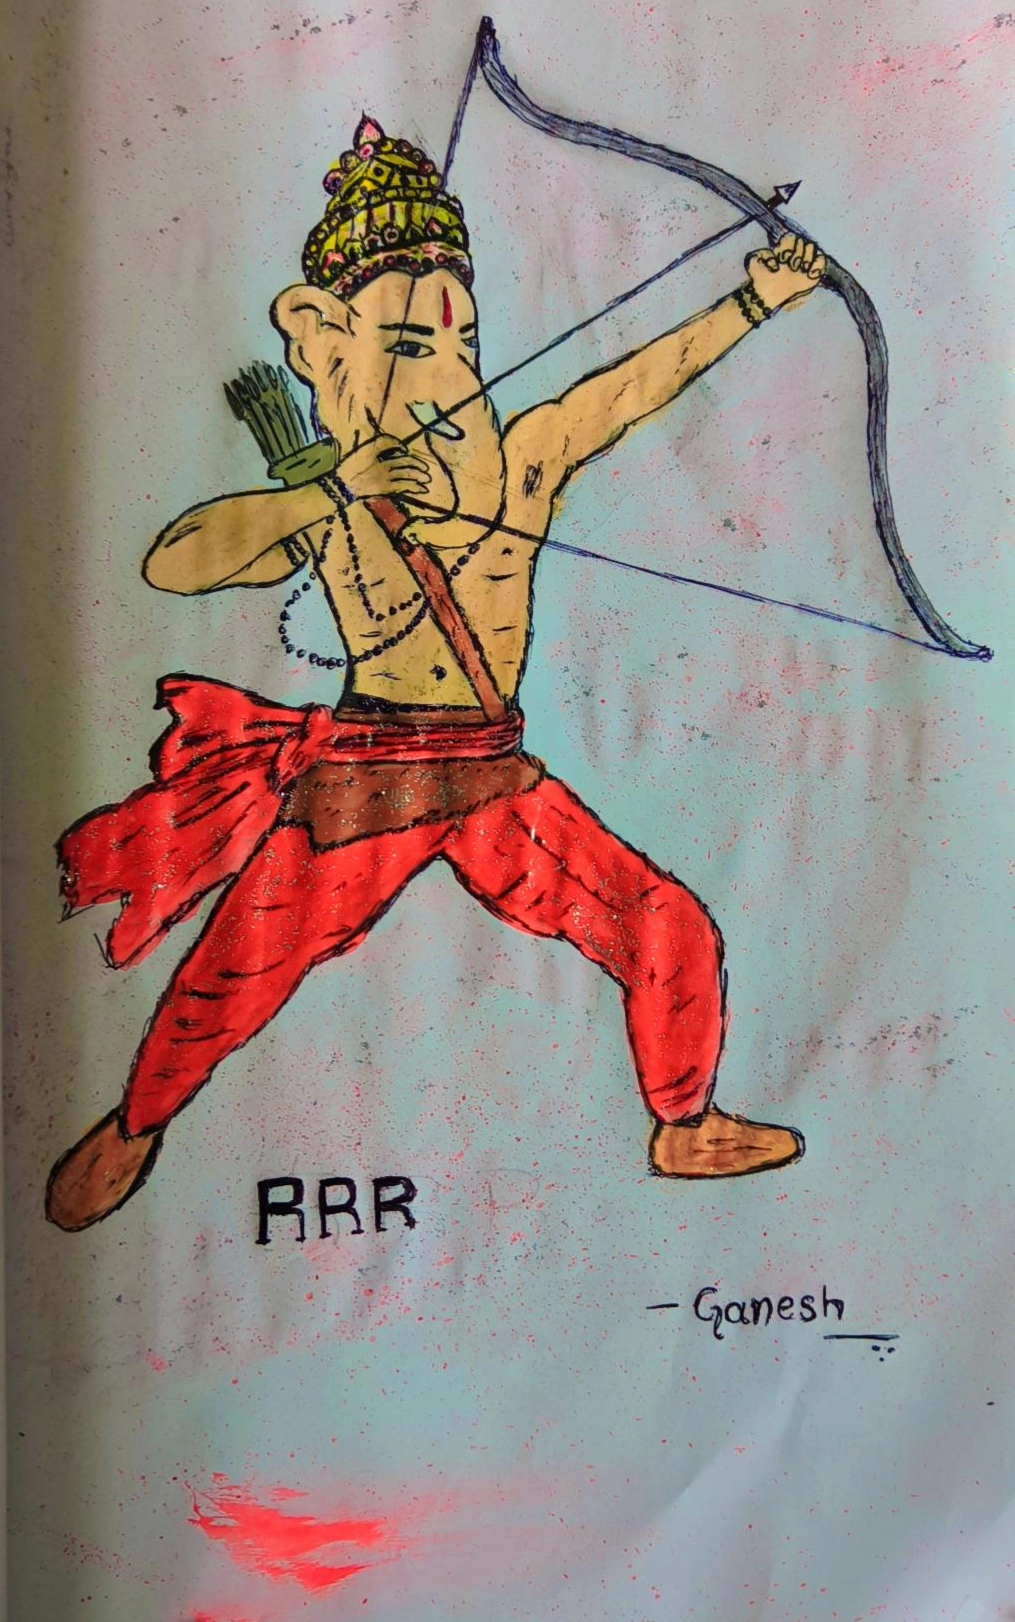 RRR
- Ganesh